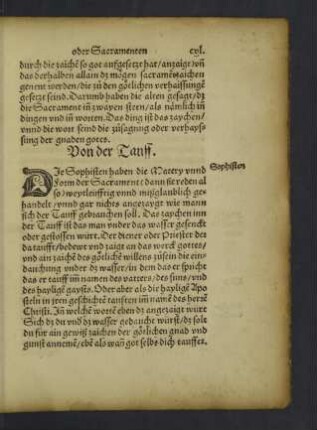 oder Sacramenten cxl.
durch die zaichē so got auffgesetzt hat/anzaigt/uñ
das derhalben allain dz mögen sacramētzaichen
genent werden/die zů den götlichen verhaissungē
gesetzt seind. Darumb haben die alten gesagt/dz
die Sacrament iñ zwayen steen/als nämlich iñ
dingen vnd iñ worten. Das ding ist das zaychen/
vnnd die wort seind die zůsagung oder verhays-
sung der gnaden gotes.
Von der Tauff.
Sophisten
DIe Sophisten haben die Matery vnnd
form der Sacrament: dann sie reden al
so weytleüffig vnd mißglaublich ge-
handelt/vnnd gar nichts angezaygt wie mann
sich der Tauff gebrauchen soll. Das zaychen inn
der Tauff ist das man vnder das wasser gesenckt
oder gestossen würt. Der diener oder Priester der
da taufft/bedewt vnd zaigt an das worck gottes/
vnd ain zaichē des götlichē willens zůsein die ein-
dauchung vnder dz wasser/in dem das er spricht
das er tauff im namen des vatters/des suns/vnd
des haylige gaysts. Oder aber als die haylige Apo
steln in iren geschichtē taufften im namē des herrē
Christi. Iñ welche wortē eben dz angezaigt würt
Sich dz du vnd dz wasser gedaucht würst/dz solt
du für ain gewiß zaichen der götlichen gnad vnd
gunst annemē/ebē als wañ got selbs dich tauffet.